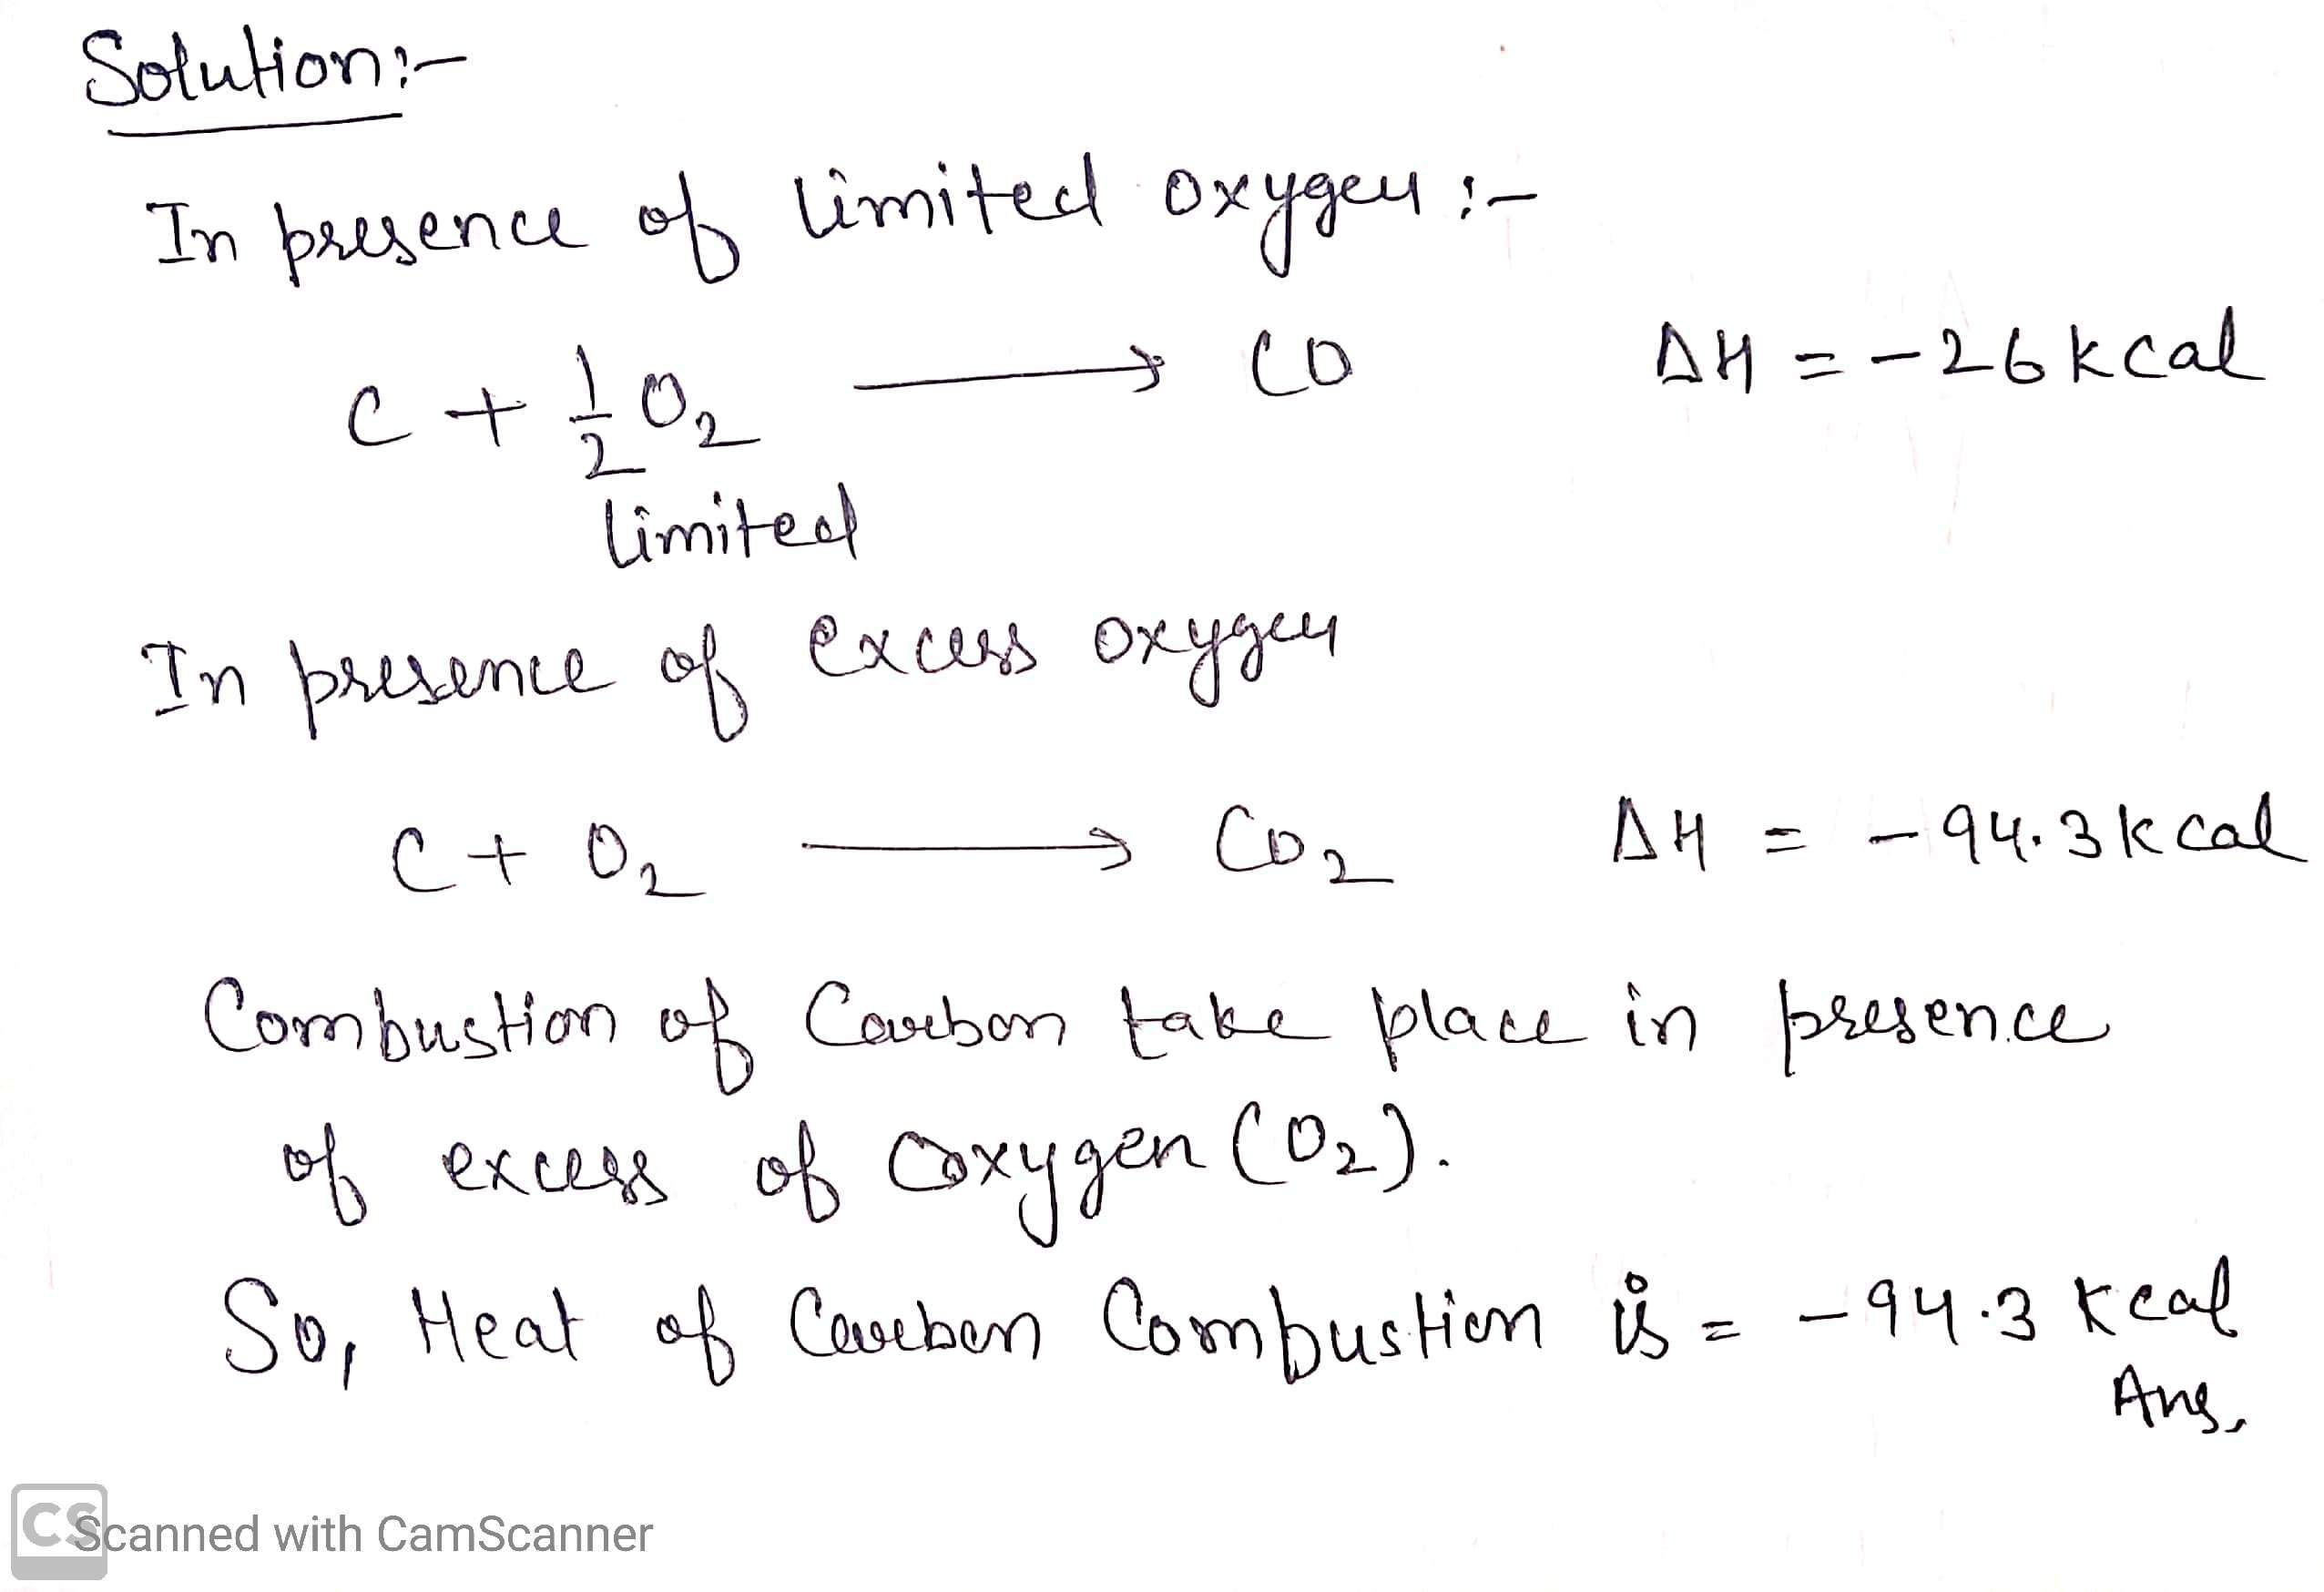 Solution:-
In presence of limited oxygen :-
C + 1/2 O₂ ⟶ CO ΔH = -26 kcal
limited
In presence of excess oxygen
C + O₂ ⟶ CO₂ ΔH = -94.3 kcal
Combustion of Carbon take place in presence
of excess of oxygen (O₂).
So, Heat of Carbon Combustion is = -94.3 Kcal
Ans.
CS Scanned with CamScanner